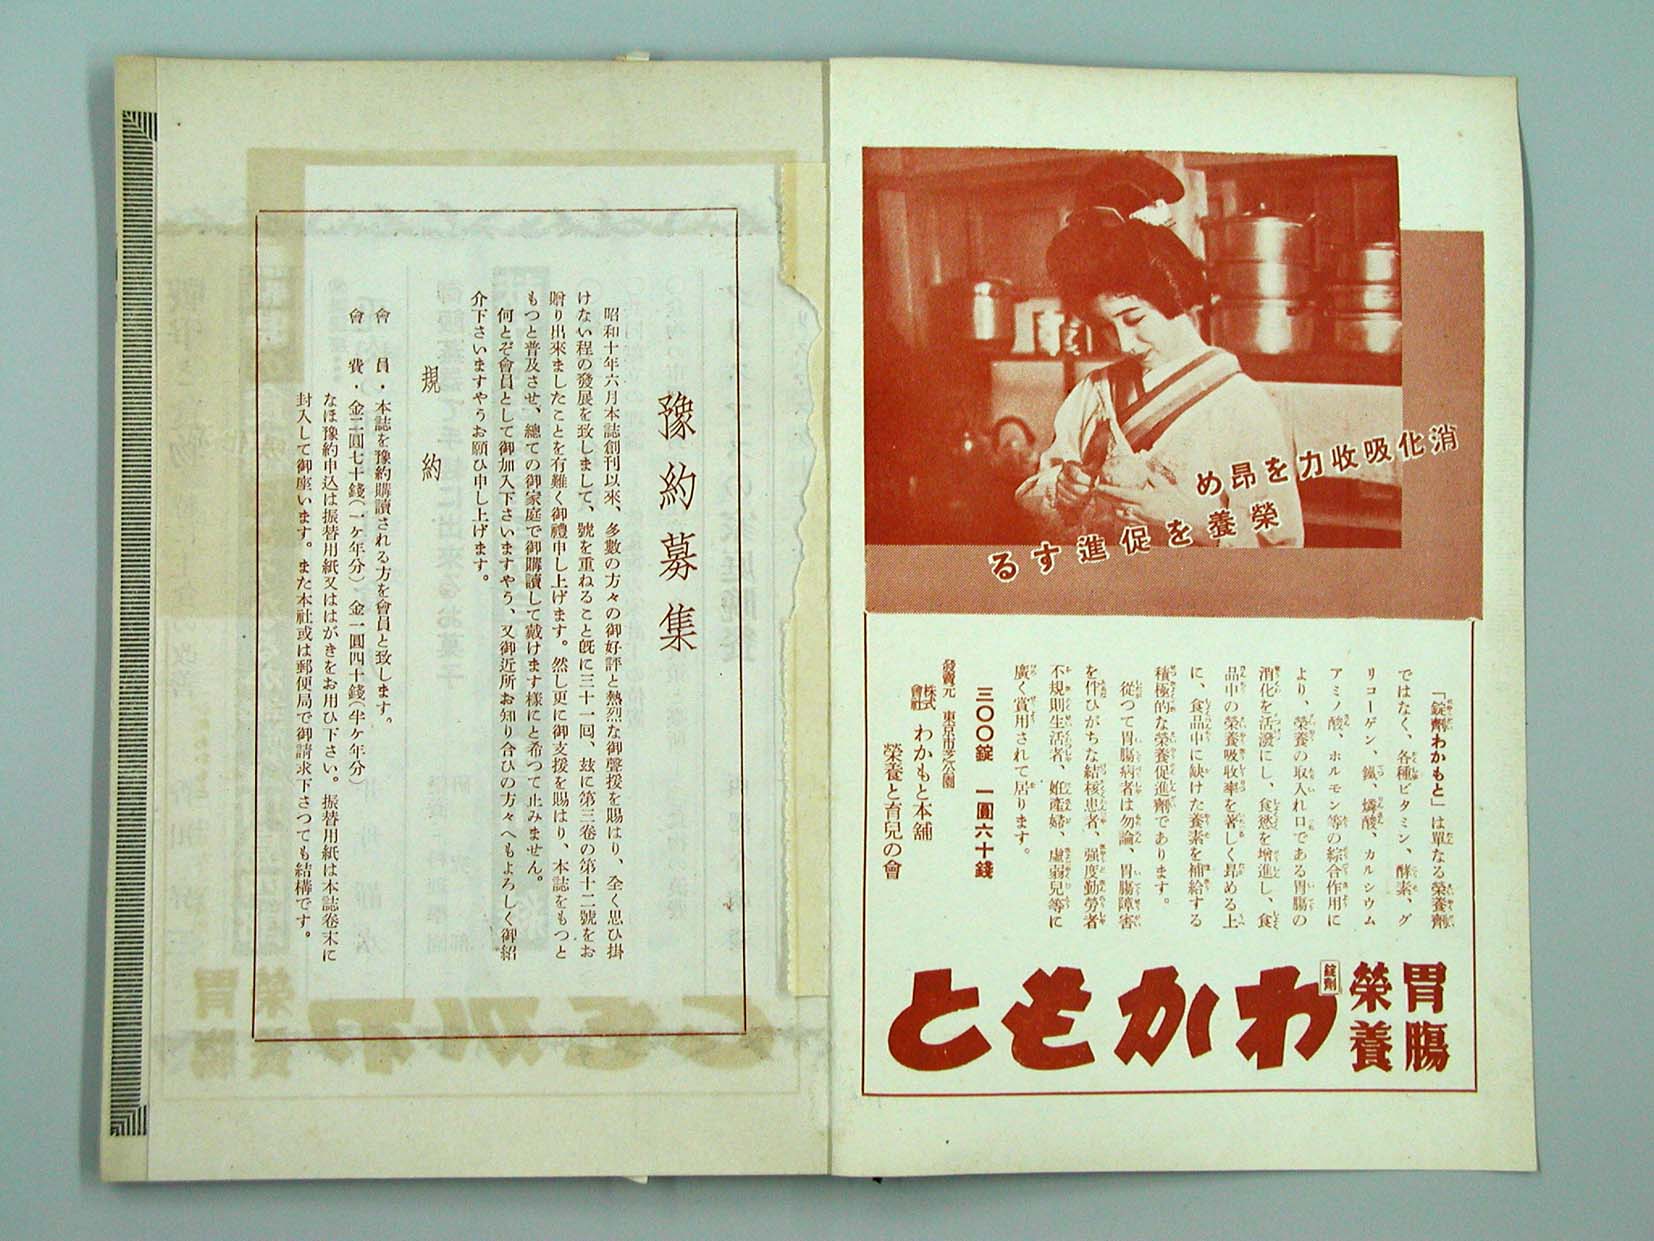 消化吸收力を昂め
榮養を促進する
「錠劑わかもと」は單なる榮養劑
ではなく、各種ビタミン、酵素、グ
リコーゲン、鐵、燐酸、カルシウム
アミノ酸、ホルモン等の綜合作用に
より、榮養の取入れ口である胃腸の
消化を活潑にし、食慾を增進し、食
品中の榮養吸收率を著しく昂める上
に、食品中に缺けた養素を補給する
積極的な榮養促進劑であります。
從つて胃腸病者は勿論、胃腸障害
を伴ひがちな結核患者、强度勤勞者
不規則生活者、姙產婦、虛弱兒等に
廣く賞用されて居ります。
三〇〇錠 一圓六十錢
發賣元 東京市芝公園
株式會社 わかもと本舖
榮養と育兒の會
胃腸
榮養
錠劑
わかもと
豫約募集
昭和十年六月本誌創刊以來、多數の方々の御好評と熱烈な御聲援を賜はり、全く思ひ掛
けない程の發展を致しまして、號を重ねること旣に三十一回、玆に第三卷の第十二號をお
贈り出來ましたことを有難く御禮申し上げます。然し更に御支援を賜はり、本誌をもつと
もつと普及させ、總ての御家庭で御購讀して戴けます樣にと希つて止みません。
何とぞ會員として御加入下さいますやう、又御近所お知り合ひの方々へもよろしく御紹
介下さいますやうお願ひ申し上げます。
規約
會員・本誌を豫約購讀される方を會員と致します。
會費・金二圓七十錢(一ケ年分) 金一圓四十錢(半ケ年分)
なほ豫約申込は振替用紙又ははがきをお用ひ下さい。振替用紙は本誌卷末に
封入して御座います。また本社或は郵便局で御請求下さつても結構です。